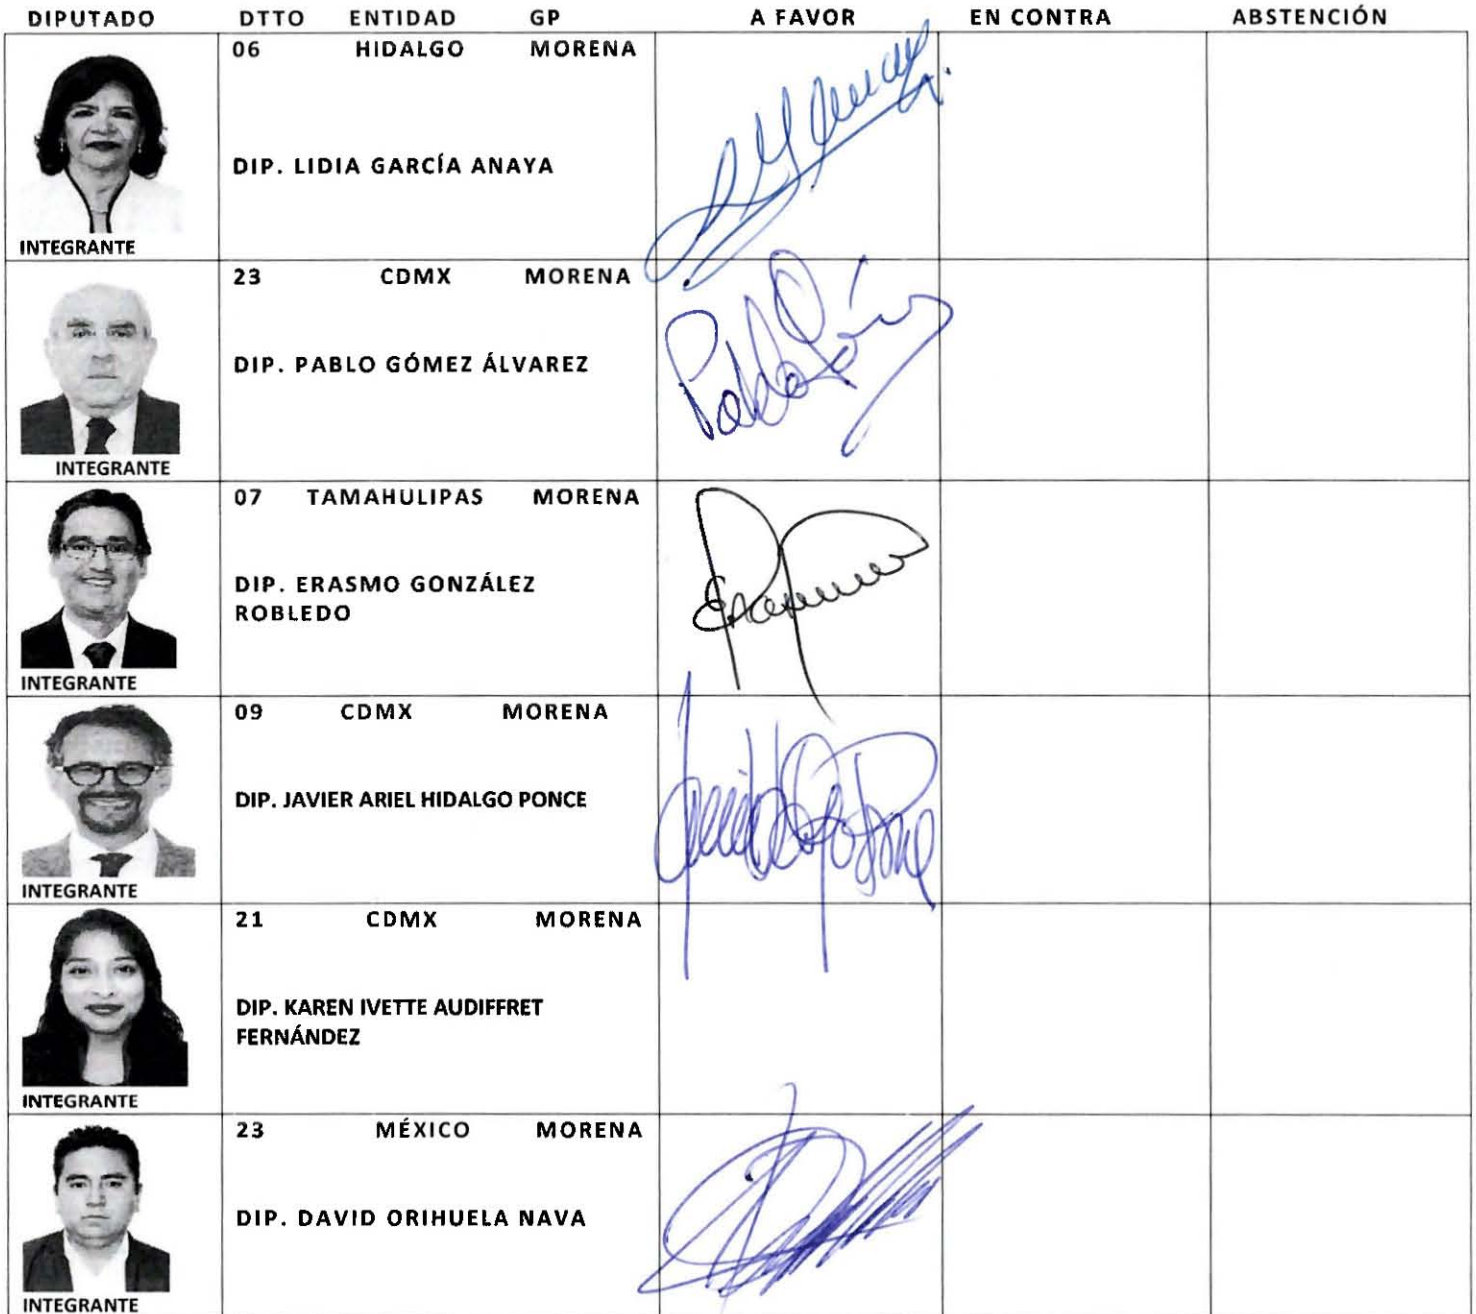 DIPUTADO DTTO ENTIDAD GP A FAVOR EN CONTRA ABSTENCIÓN
06 HIDALGO MORENA
DIP. LIDIA GARCÍA ANAYA
INTEGRANTE
23 CDMX MORENA
DIP. PABLO GÓMEZ ÁLVAREZ
INTEGRANTE
07 TAMAHULIPAS MORENA
DIP. ERASMO GONZÁLEZ
ROBLEDO
INTEGRANTE
09 CDMX MORENA
DIP. JAVIER ARIEL HIDALGO PONCE
INTEGRANTE
21 CDMX MORENA
DIP. KAREN IVETTE AUDIFFRET
FERNÁNDEZ
INTEGRANTE
23 MÉXICO MORENA
DIP. DAVID ORIHUELA NAVA
INTEGRANTE